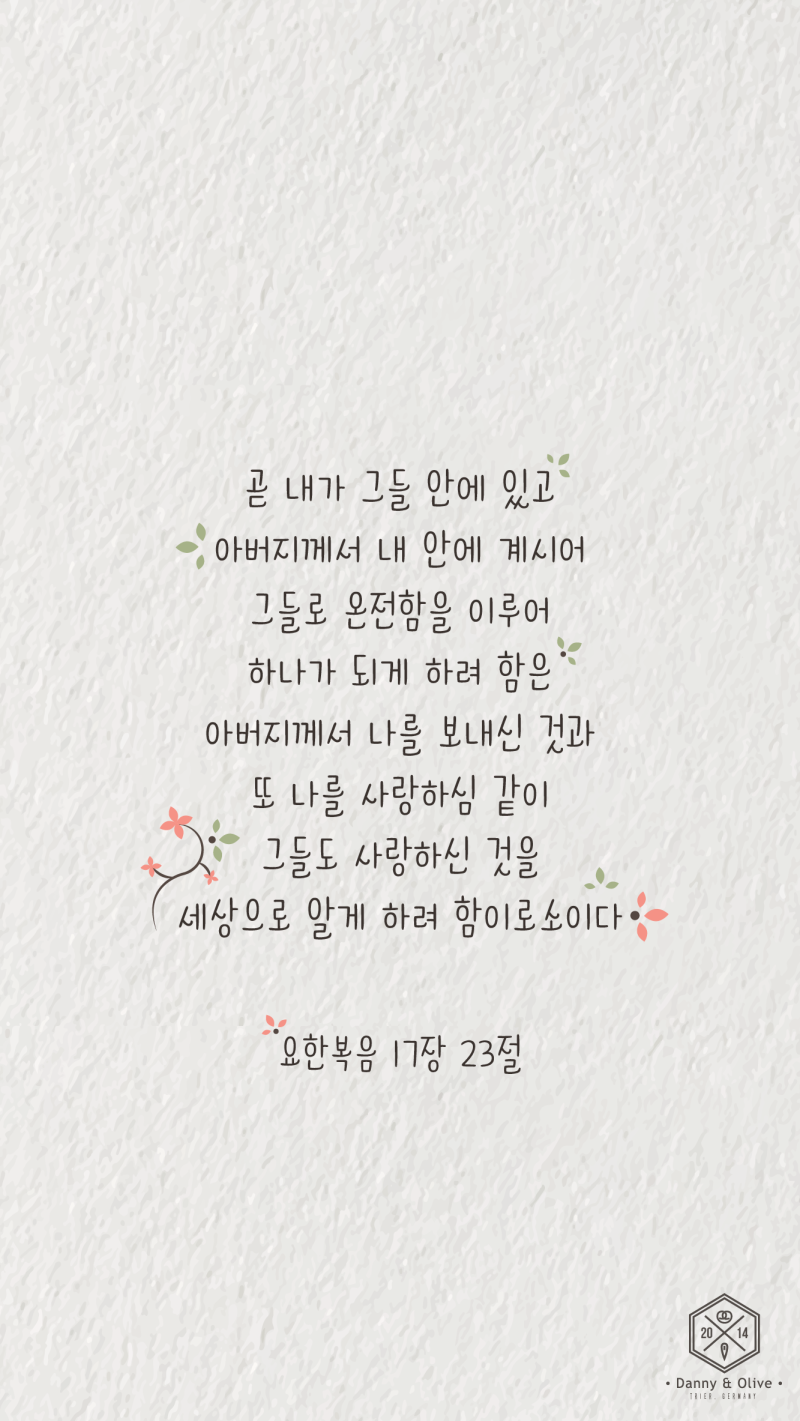 곧 내가 그들 안에 있고
아버지께서 내 안에 계시어
그들로 온전함을 이루어
하나가 되게 하려 함은
아버지께서 나를 보내신 것과
또 나를 사랑하심 같이
그들도 사랑하신 것을
세상으로 알게 하려 함이로소이다
요한복음 17장 23절
20 14
• Danny & Olive •
TRIER GERMANY